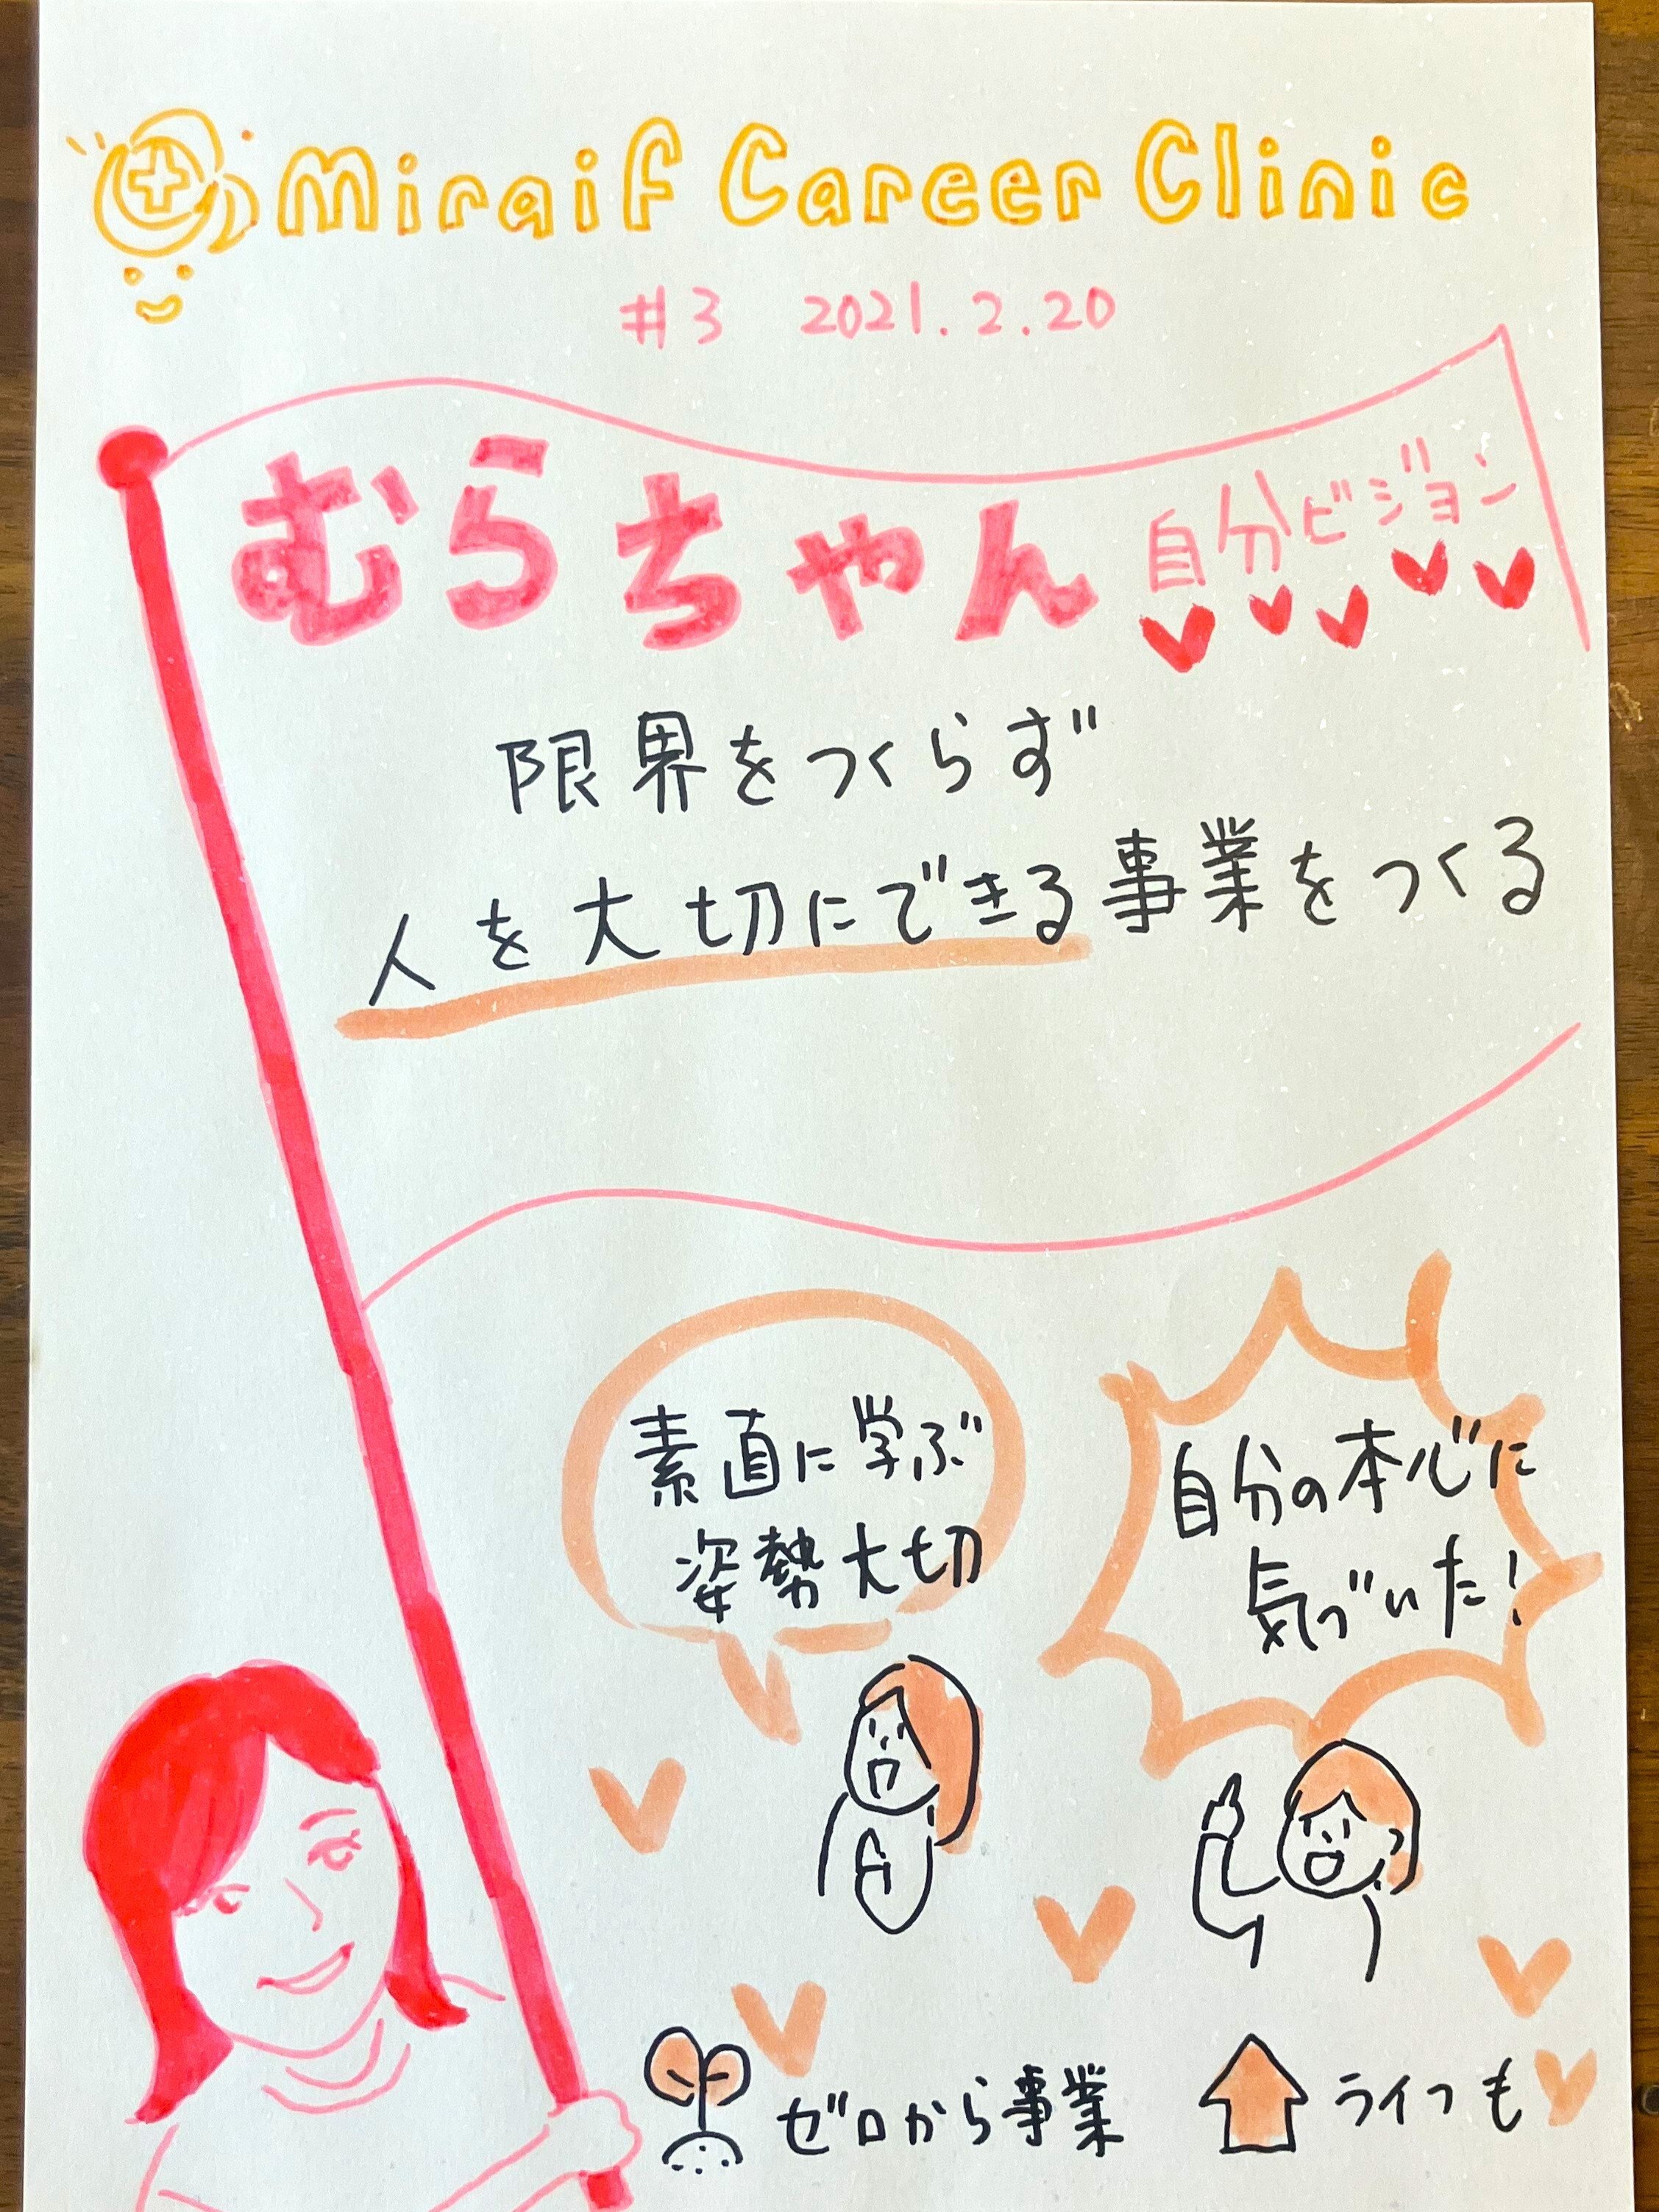 Miraif Career Clinic
#3 2021.2.20
むらちゃん 自分ビジョン
限界をつくらず
人を大切にできる事業をつくる
素直に学ぶ
姿勢大切
自分の本心に
気づいた!
ゼロから事業
ライフも